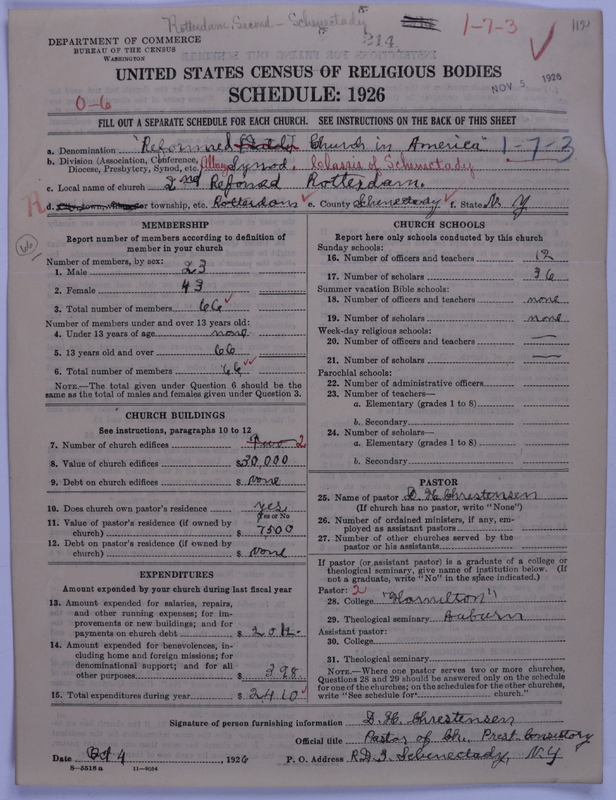 Rotterdam, Second - Schenectady
314
1-7-3
DEPARTMENT OF COMMERCE
BUREAU OF THE CENSUS
WASHINGTON
NOV 5 1926
UNITED STATES CENSUS OF RELIGIOUS BODIES
SCHEDULE: 1926
0-6
FILL OUT A SEPARATE SCHEDULE FOR EACH CHURCH. SEE INSTRUCTIONS ON THE BACK OF THIS SHEET
a. Denomination "Reformed Church in America" 1-7-3
b. Division (Association, Conference, Diocese, Presbytery, Synod, etc.) Albany Synod. Classis of Schenectady
c. Local name of church 2nd Reformed Rotterdam.
d. township, etc. Rotterdam e. County Schenectady f. State N. Y.
66
MEMBERSHIP
Report number of members according to definition of
member in your church
Number of members, by sex:
1. Male 23
2. Female 43
3. Total number of members 66
Number of members under and over 13 years old:
4. Under 13 years of age none
5. 13 years old and over 66
6. Total number of members 66
NOTE.—The total given under Question 6 should be the
same as the total of males and females given under Question 3.
CHURCH BUILDINGS
See instructions, paragraphs 10 to 12
7. Number of church edifices Two 2
8. Value of church edifices $30,000
9. Debt on church edifices $ none
10. Does church own pastor's residence yes
Yes or No
11. Value of pastor's residence (if owned by
church) $ 7500
12. Debt on pastor's residence (if owned by
church) $ none
EXPENDITURES
Amount expended by your church during last fiscal year
13. Amount expended for salaries, repairs,
and other running expenses; for im-
provements or new buildings; and for
payments on church debt $ 2012.
14. Amount expended for benevolences, in-
cluding home and foreign missions; for
denominational support; and for all
other purposes $ 398
15. Total expenditures during year $ 2410
CHURCH SCHOOLS
Report here only schools conducted by this church
Sunday schools:
16. Number of officers and teachers 12
17. Number of scholars 36
Summer vacation Bible schools:
18. Number of officers and teachers none
19. Number of scholars none
Week-day religious schools:
20. Number of officers and teachers —
21. Number of scholars —
Parochial schools:
22. Number of administrative officers
23. Number of teachers—
a. Elementary (grades 1 to 8)
b. Secondary
24. Number of scholars—
a. Elementary (grades 1 to 8)
b. Secondary
PASTOR
25. Name of pastor D. H. Chrestensen
(If church has no pastor, write "None")
26. Number of ordained ministers, if any, em-
ployed as assistant pastors
27. Number of other churches served by the
pastor or his assistants
If pastor (or assistant pastor) is a graduate of a college or
theological seminary, give name of institution below. (If
not a graduate, write "No" in the space indicated.)
Pastor: 2
28. College "Hamilton"
29. Theological seminary Auburn
Assistant pastor:
30. College
31. Theological seminary
NOTE.—Where one pastor serves two or more churches,
Questions 28 and 29 should be answered only on the schedule
for one of the churches; on the schedules for the other churches,
write "See schedule for church."
Signature of person furnishing information D. H. Chrestensen
Official title Pastor of Ch. Prest. Consistory
Date Oct 4, 1926 P. O. Address R.D. Schenectady, N.Y
8—5518 a 11—9054